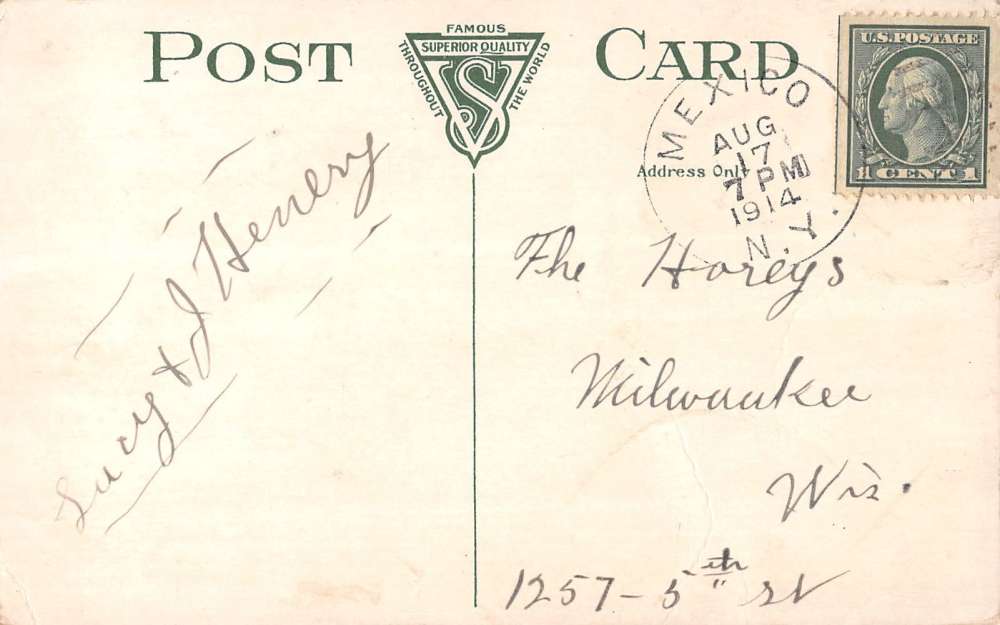 POST CARD
FAMOUS
SUPERIOR QUALITY
THROUGHOUT
THE WORLD
VS
U.S. POSTAGE
1 CENT 1
MEXICO
AUG
17
7 PM
1914
N.Y.
Address Only
Lucy & J Henery
The Horeys
Milwaukee
Wis.
1257-5th st